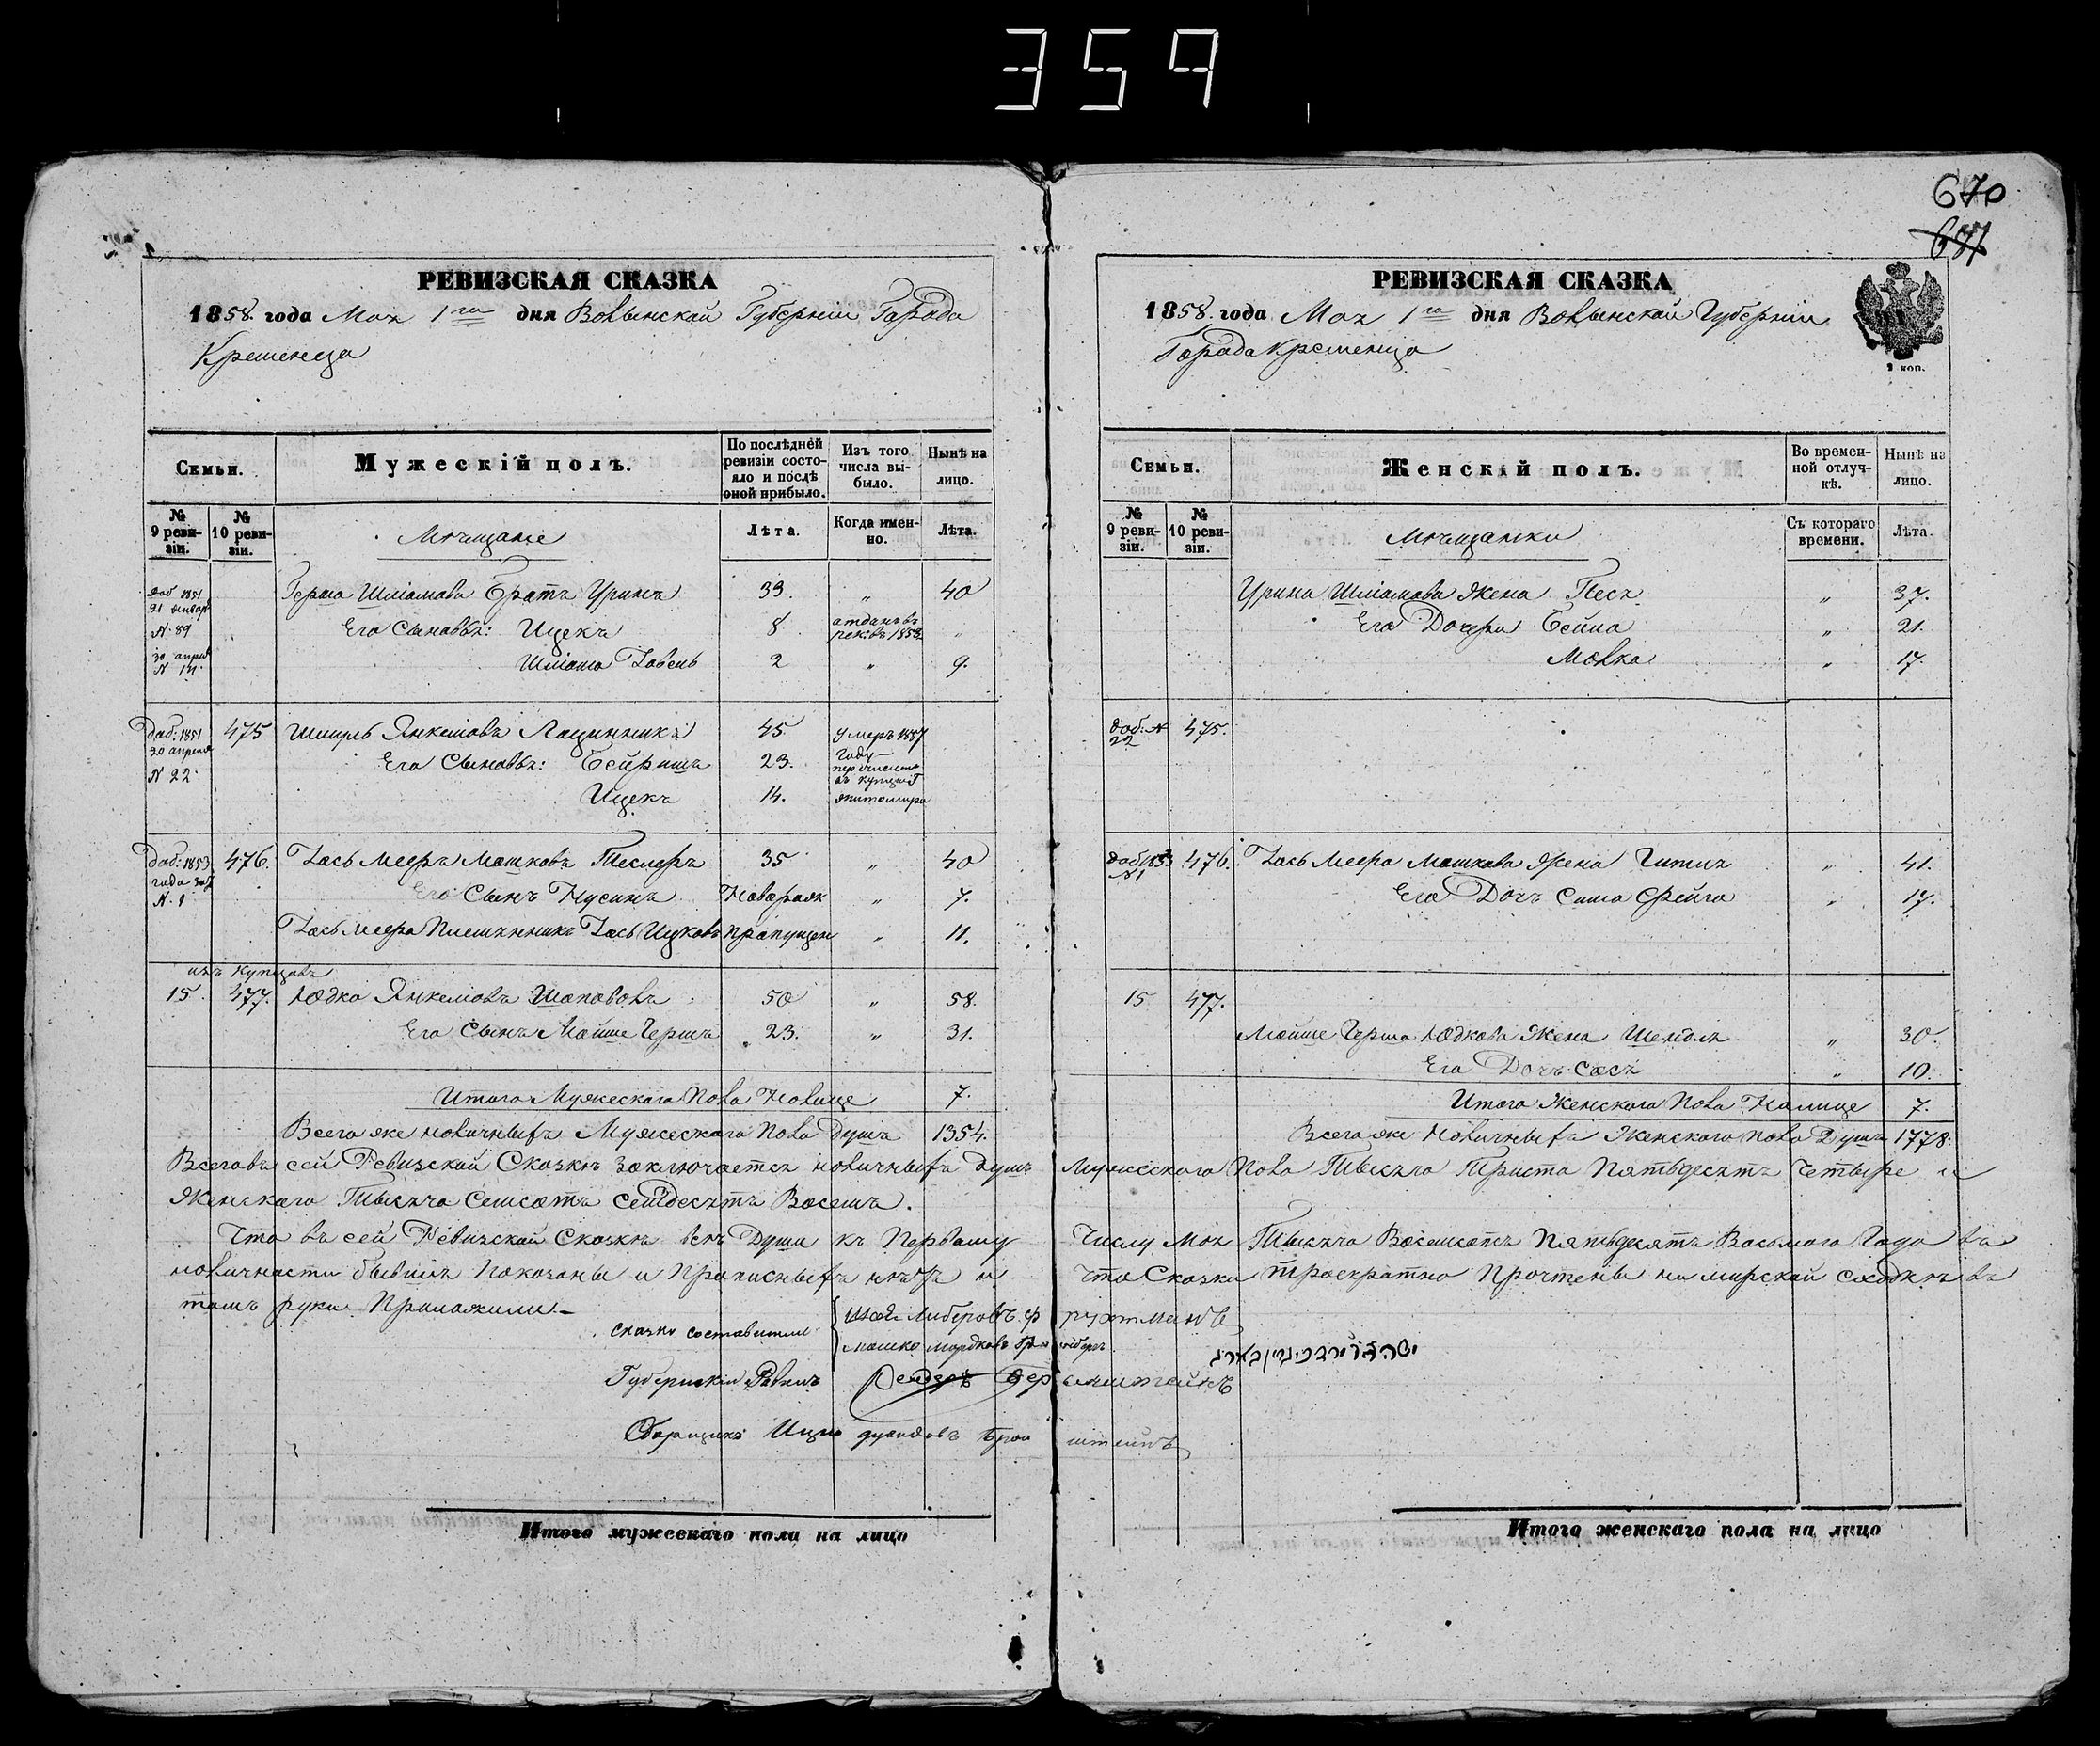 359
670
637
РЕВИЗСКАЯ СКАЗКА
1858 года Мая 1го дня Волынской Губернии Города
Кременца
Семьи.
Мужескій полъ.
По послѣдней ревизіи состояло и послѣ оной прибыло.
Изъ того числа выбыло.
Нынѣ на лицо.
№ 9 ревизіи.
№ 10 ревизіи.
Мѣщане
Лѣта.
Когда именно.
Лѣта.
доб 1851 21 январ N. 89
Герша Шліомова Братъ Уринъ 33. „ 40
Его Сыновья: Ицекъ 8 отданъ въ рек. въ 1853 „
30 апрел N 14.
Шліома 2 „ 9.
доб: 1851 20 апреля N 22.
475 Шмуль Янкелювъ 45 умеръ 1857 году
Его Сыновья: Бейришъ 23. перечислен въ купцы г
Ицекъ 14. житомира
доб: 1853 года N. 1
476. Іось Мееръ Мошковъ Теслеръ 35 „ 40
Его Сынъ Нусинъ Новорож „ 7.
Іось Меера Племянникъ Іось Ицковъ пропущен „ 11.
изъ купцовъ
15. 477. Іодко Янкелювъ Шаповалъ 50 „ 58.
Его Сынъ Мойше Гершъ 23. „ 31.
Итого Мужескаго Пола Налице 7.
Всего же наличныхъ Мужескаго Пола Душъ 1354.
РЕВИЗСКАЯ СКАЗКА
1858. года Мая 1го дня Волынской Губерніи
Города Кременца
2 коп.
Семьи.
Женскій полъ.
Во временной отлучкѣ.
Нынѣ на лицо.
№ 9 ревизіи.
№ 10 ревизіи.
Мѣщанки
Съ котораго времени.
Лѣта.
Урина Шліомова Жена Песя „ 37.
Его Дочери Бейла „ 21.
Малка „ 17.
доб. N 22 475.
доб 1853 N1 476. Іось Меера Мошкова Жена Гитля „ 41.
Его Дочь Сима Фейга „ 17.
15 477.
Мойше Герша Іодкова Жена Шендля „ 30.
Его Дочь Сося „ 10.
Итого Женскаго Пола Налице 7.
Всего же Наличныхъ Женскаго пола Душъ 1778.
Всего въ сей Ревизской Сказкѣ заключается наличныхъ душъ Мужескаго Пола Тысяча Триста Пятьдесятъ Четыре и
Женскаго Тысяча Семсотъ Семдесятъ Восемъ.
Что въ сей Ревизской Сказкѣ всѣ Души къ Первому Числу Мая Тысяча Восемсотъ Пятьдесятъ Восьмого Года въ
наличности бывшія Показаны и Прописныхъ нѣтъ и что Сказки троекратно Прочтены на мирской сходкѣ въ
томъ руки Приложили.—
сказку составили Шая Либеровъ Фрухтманъ
Мошко Мордковъ
Губернскій Равинъ
Сборщикъ Ицко Бронштейнъ
Итого мужескаго пола на лицо
Итого женскаго пола на лицо